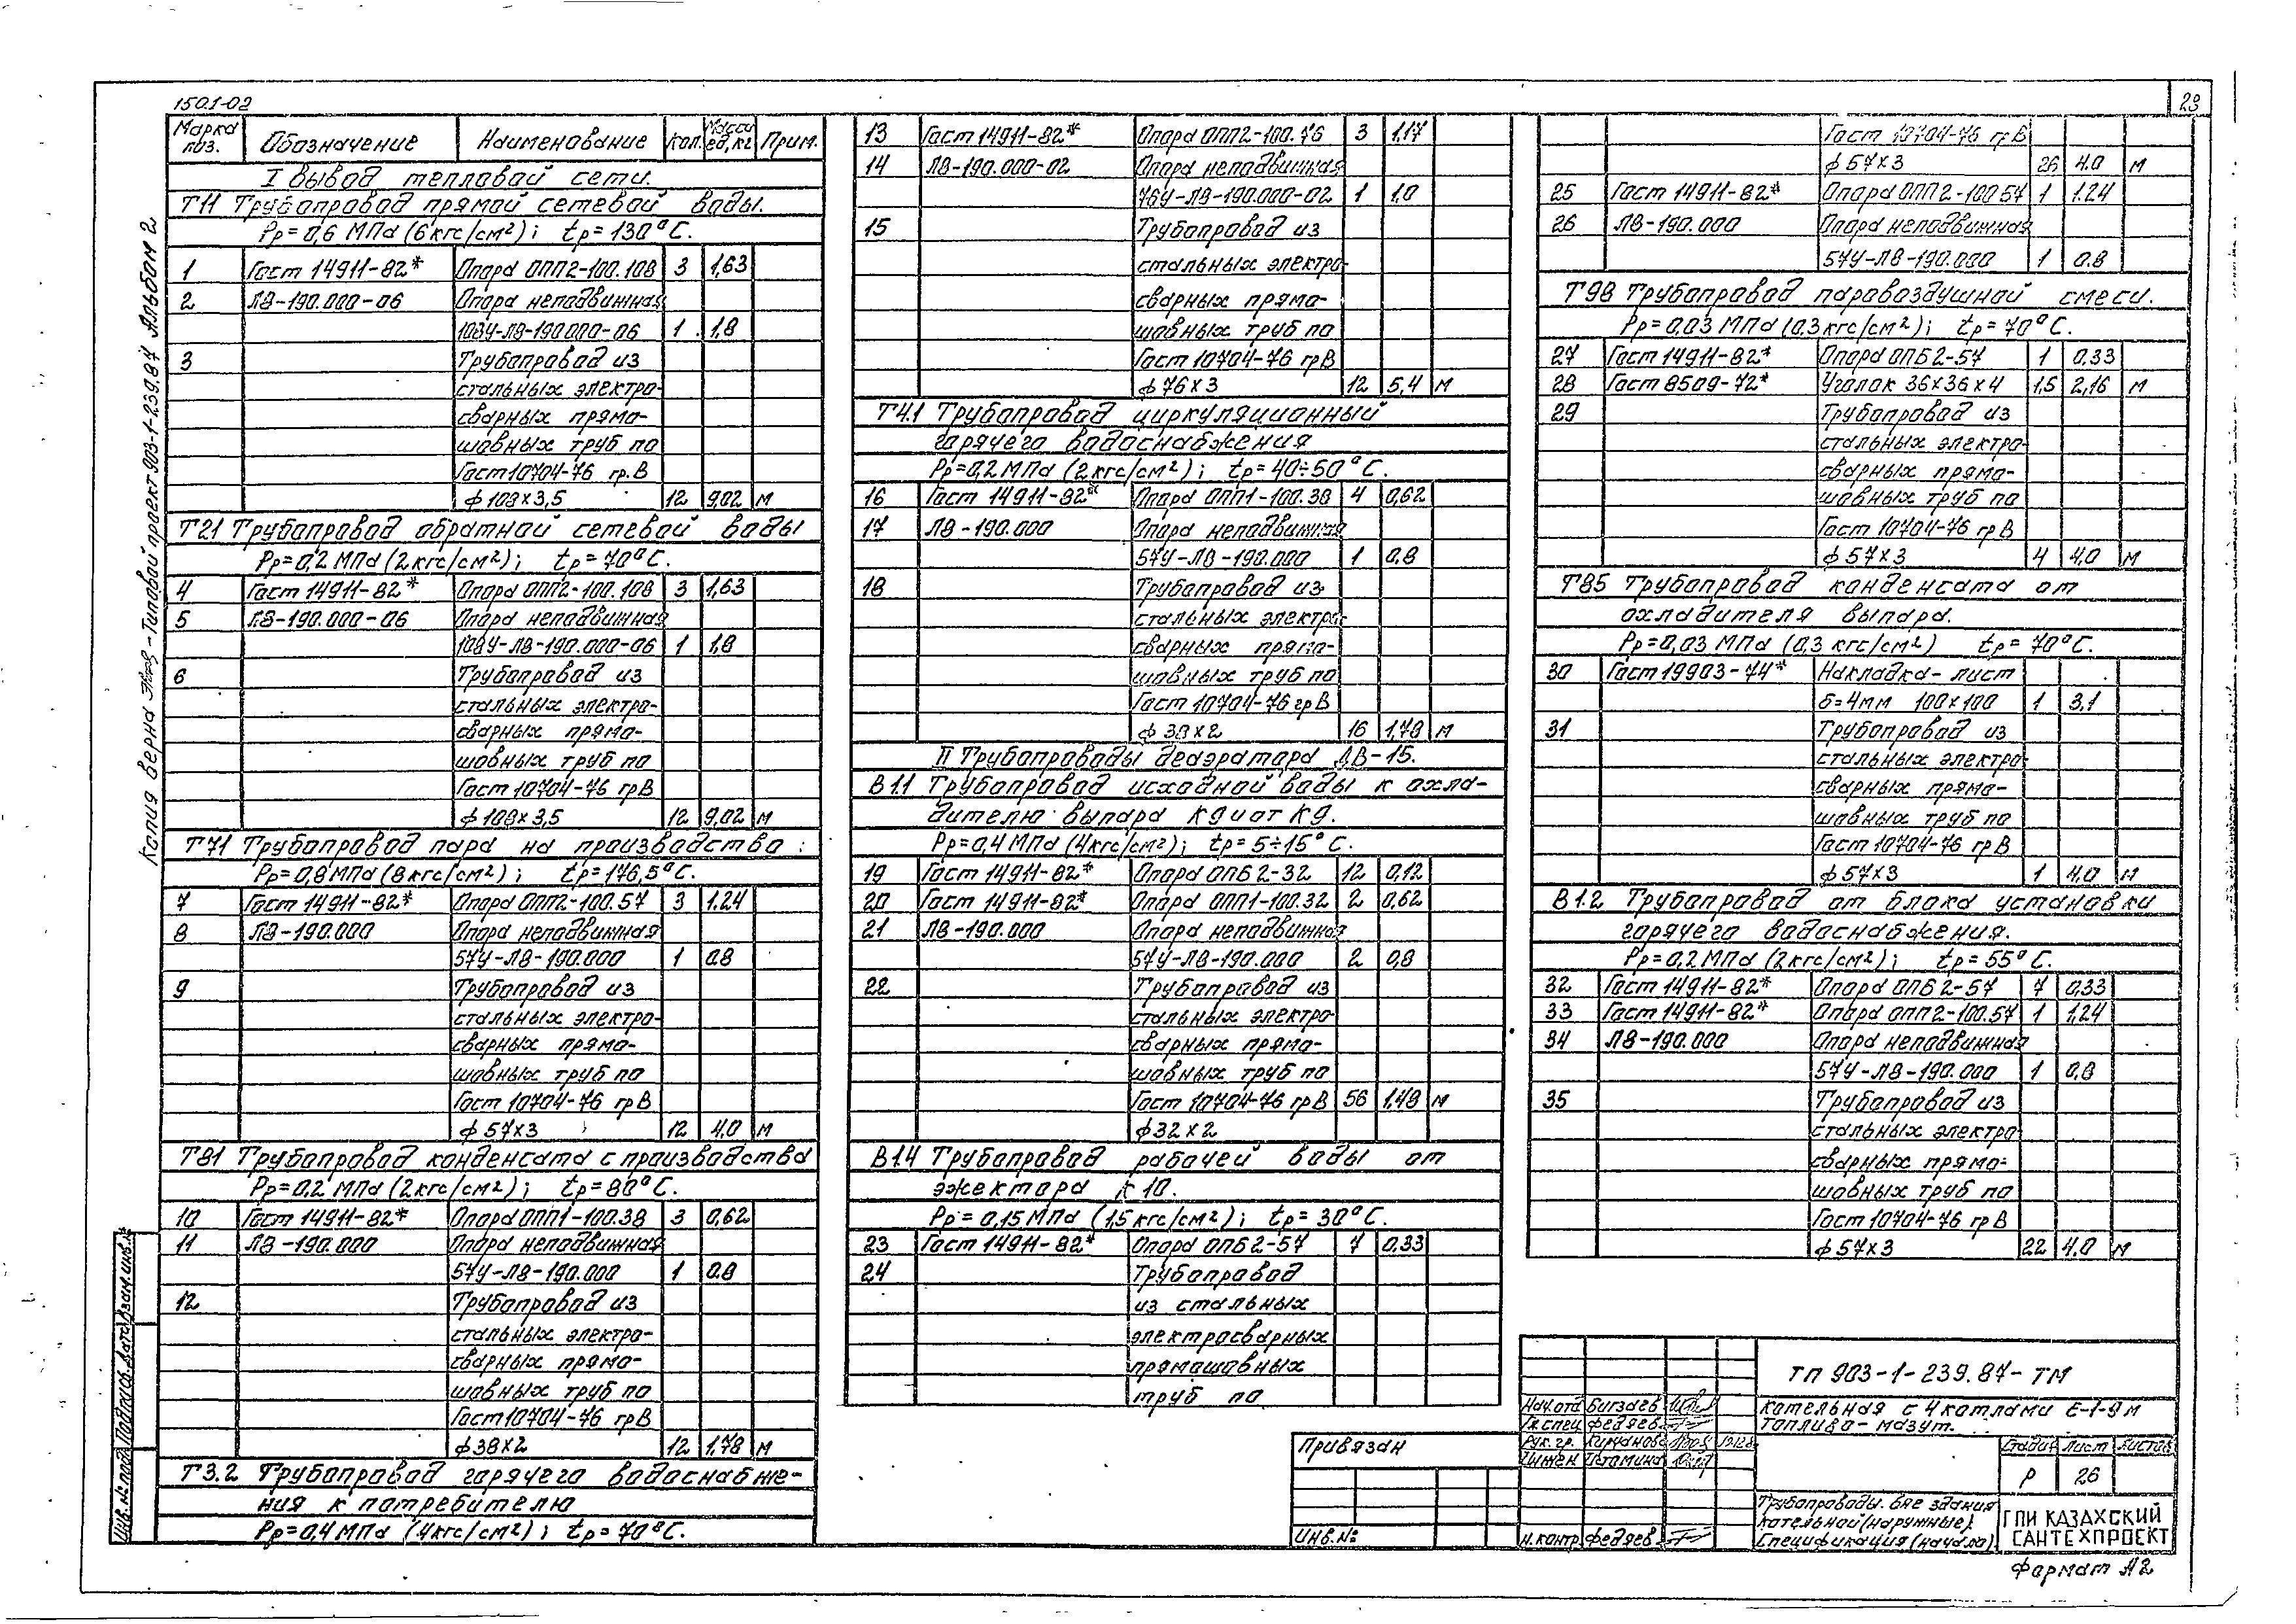 23
1501-02
Марка поз. Обозначение Наименование Кол. Масса ед, кг Прим.
I Вывод тепловой сети.
Т11 Трубопровод прямой сетевой воды.
Рр=0,6 МПа (6кгс/см²); tр=130°С.
1 Гост 14911-82* Опора ОПП2-100.108 3 1,63
2 Л8-190.000-06 Опора неподвижная
108У-Л8-190.000-06 1 1,8
3 Трубопровод из
стальных электро-
сварных прямо-
шовных труб по
Гост 10704-76 гр.В
ф 108×3,5 12 9,02 м
Т21 Трубопровод обратной сетевой воды
Рр=0,2 МПа (2кгс/см²); tр=70°С.
4 Гост 14911-82* Опора ОПП2-100.108 3 1,63
5 Л8-190.000-06 Опора неподвижная
108У-Л8-190.000-06 1 1,8
6 Трубопровод из
стальных электро-
сварных прямо-
шовных труб по
Гост 10704-76 гр В
ф 108×3,5 12 9,02 м
Т71 Трубопровод пара на производство:
Рр=0,8 МПа (8кгс/см²); tр=176,5°С.
7 Гост 14911-82* Опора ОПП2-100.57 3 1.24
8 Л8-190.000 Опора неподвижная
57У-Л8-190.000 1 0.8
9 Трубопровод из
стальных электро-
сварных прямо-
шовных труб по
Гост 10704-76 гр В
ф 57×3 12 4.0 м
Т81 Трубопровод конденсата с производства
Рр=0.2 МПа (2кгс/см²); tр=80°С.
10 Гост 14911-82* Опора ОПП1-100.38 3 0,62
11 Л8-190.000 Опора неподвижная
57У-Л8-190.000 1 0.8
12 Трубопровод из
стальных электро-
сварных прямо-
шовных труб по
Гост 10704-76 гр В
ф 38×2 12 1.78 м
Т3.2 Трубопровод горячего водоснабже-
ния к потребителю
Рр=0,4 МПа (4кгс/см²); tр=70°С.
13 Гост 14911-82* Опора ОПП2-100.76 3 1,17
14 Л8-190.000-02 Опора неподвижная
76У-Л8-190.000-02 1 1,0
15 Трубопровод из
стальных электро-
сварных прямо-
шовных труб по
Гост 10704-76 гр В
ф 76×3 12 5,4 м
Т4.1 Трубопровод циркуляционный
горячего водоснабжения
Рр=0,2 МПа (2кгс/см²); tр=40÷50°С.
16 Гост 14911-82* Опора ОПП1-100.38 4 0,62
17 Л8-190.000 Опора неподвижная
57У-Л8-190.000 1 0,8
18 Трубопровод из
стальных электро-
сварных прямо-
шовных труб по
Гост 10704-76 гр В
ф 38×2 16 1,78 м
II Трубопроводы деаэратора ДВ-15.
В1.1 Трубопровод исходной воды к охла-
дителю выпара К9 и от К9.
Рр=0,4 МПа (4кгс/см²); tр=5÷15°С.
19 Гост 14911-82* Опора ОПБ2-32 12 0,12
20 Гост 14911-82* Опора ОПП1-100.32 2 0,62
21 Л8-190.000 Опора неподвижная
57У-Л8-190.000 2 0,8
22 Трубопровод из
стальных электро-
сварных прямо-
шовных труб по
Гост 10704-76 гр В 56 1,48 м
ф 32×2
В1.4 Трубопровод рабочей воды от
эжектора К10.
Рр=0,15 МПа (1,5кгс/см²); tр=30°С.
23 Гост 14911-82* Опора ОПБ2-57 7 0.33
24 Трубопровод
из стальных
электросварных
прямошовных
труб по
Гост 10704-76 гр В
ф 57×3 26 4.0 м
25 Гост 14911-82* Опора ОПП2-100 57 1 1.24
26 Л8-190.000 Опора неподвижная
57У-Л8-190.000 1 0.8
Т98 Трубопровод паровоздушной смеси.
Рр=0,03 МПа (0.3кгс/см²); tр=70°С.
27 Гост 14911-82* Опора ОПБ2-57 1 0.33
28 Гост 8509-72* Уголок 36×36×4 1,5 2,16 м
29 Трубопровод из
стальных электро-
сварных прямо-
шовных труб по
Гост 10704-76 гр В
ф 57×3 4 4,0 м
Т85 Трубопровод конденсата от
охладителя выпара.
Рр=0,03 МПа (0.3 кгс/см²) tр=70°С.
30 Гост 19903-74* Накладка-лист
б=4мм 100×100 1 3,1
31 Трубопровод из
стальных электро-
сварных прямо-
шовных труб по
Гост 10704-76 гр В
ф 57×3 1 4.0 м
В1.2 Трубопровод от блока установки
горячего водоснабжения.
Рр=0.2 МПа (2кгс/см²); tр=55°С.
32 Гост 14911-82* Опора ОПБ2-57 7 0,33
33 Гост 14911-82* Опора ОПП2-100.57 1 1,24
34 Л8-190.000 Опора неподвижная
57У-Л8-190.000 1 0,8
35 Трубопровод из
стальных электро-
сварных прямо-
шовных труб по
Гост 10704-76 гр В
ф 57×3 22 4.0 м
Копия верна Типовой проект 903-1-239.87 Альбом 2
Инв. № подл. Подпись, дата Взам. инв. №
Привязан
Инв.№
Нач.отд Бигзаев
Гл.спец Федяев
Рук. гр.
Инжен. Истомина
Н.контр. Федяев
ТП 903-1-239.87-ТМ
Котельная с 4 котлами Е-1-9м
Топливо-мазут.
Стадия Лист Листов
Р 26
Трубопроводы вне здания
котельной (наружные).
Спецификация (начало)
ГПИ КАЗАХСКИЙ
САНТЕХПРОЕКТ
Формат А2